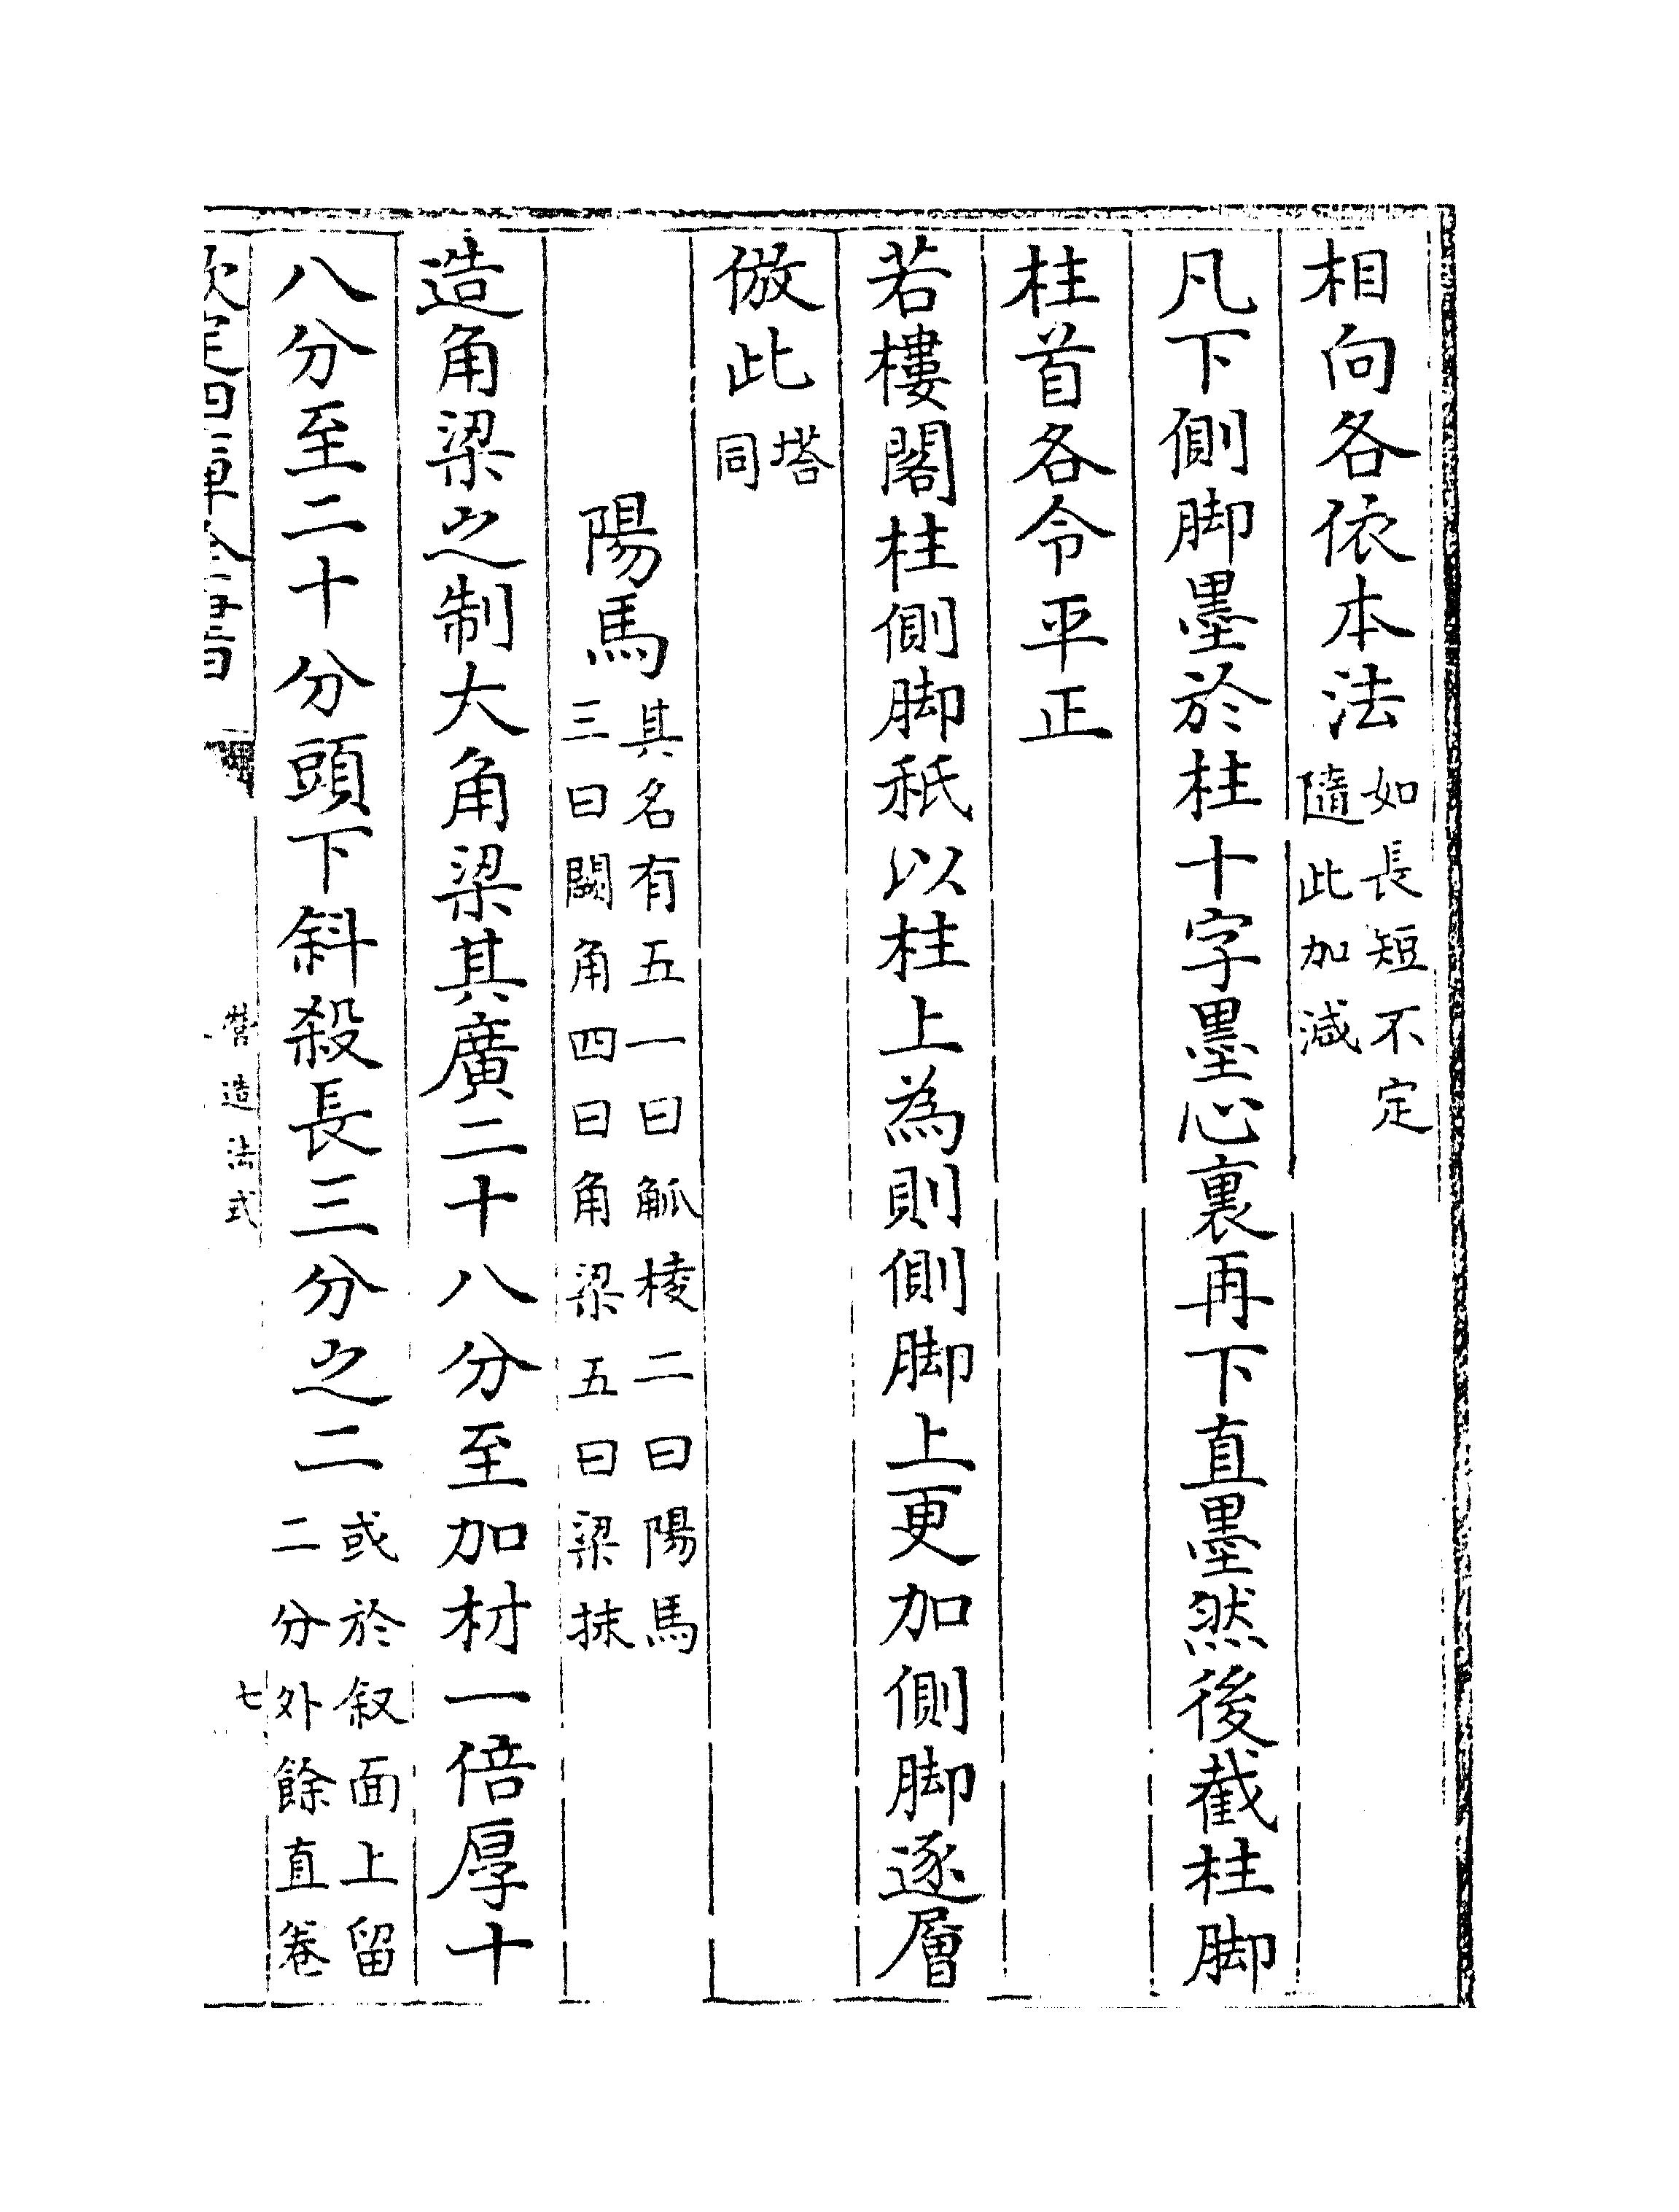 相向各依本法如長短不定隨此加減
凡下側脚墨於柱十字墨心裏再下直墨然後截柱脚
柱首各令平正
若樓閣柱側脚秖以柱上為則側脚上更加側脚逐層
倣此塔同
陽馬其名有五一曰觚棱二曰陽馬三曰闕角四曰角梁五曰梁抹
造角梁之制大角梁其廣二十八分至加材一倍厚十
八分至二十分頭下斜殺長三分之二或於叙面上留二分外餘直卷
欽定四庫全書
營造法式
七